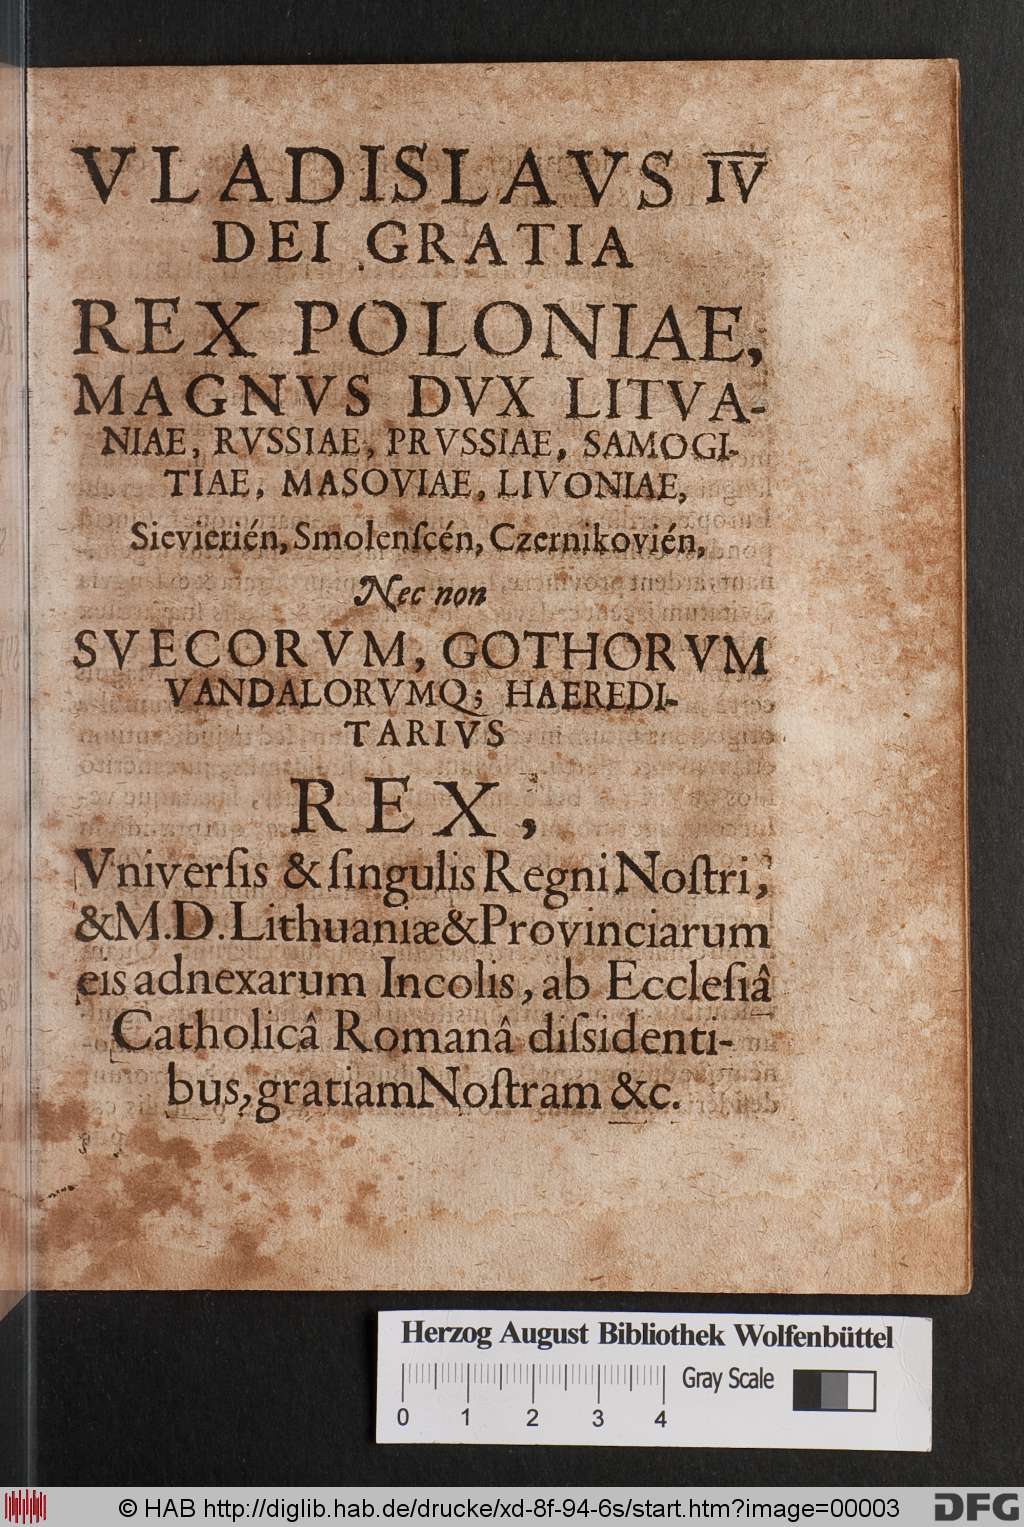 VLADISLAVS IV
DEI GRATIA
REX POLONIAE,
MAGNVS DVX LITVA-
NIAE, RVSSIAE, PRVSSIAE, SAMOGI-
TIAE, MASOVIAE, LIVONIAE,
Sievierién, Smolenſcén, Czernikovién,
Nec non
SVECORVM, GOTHORVM
VANDALORVMQ; HAEREDI-
TARIVS
REX,
Vniverſis & ſingulis Regni Noſtri,
& M.D. Lithuaniæ & Provinciarum
eis adnexarum Incolis, ab Eccleſiâ
Catholicâ Romanâ diſsidenti-
bus, gratiam Noſtram &c.
Herzog August Bibliothek Wolfenbüttel
Gray Scale
0 1 2 3 4
© HAB http://diglib.hab.de/drucke/xd-8f-94-6s/start.htm?image=00003
DFG